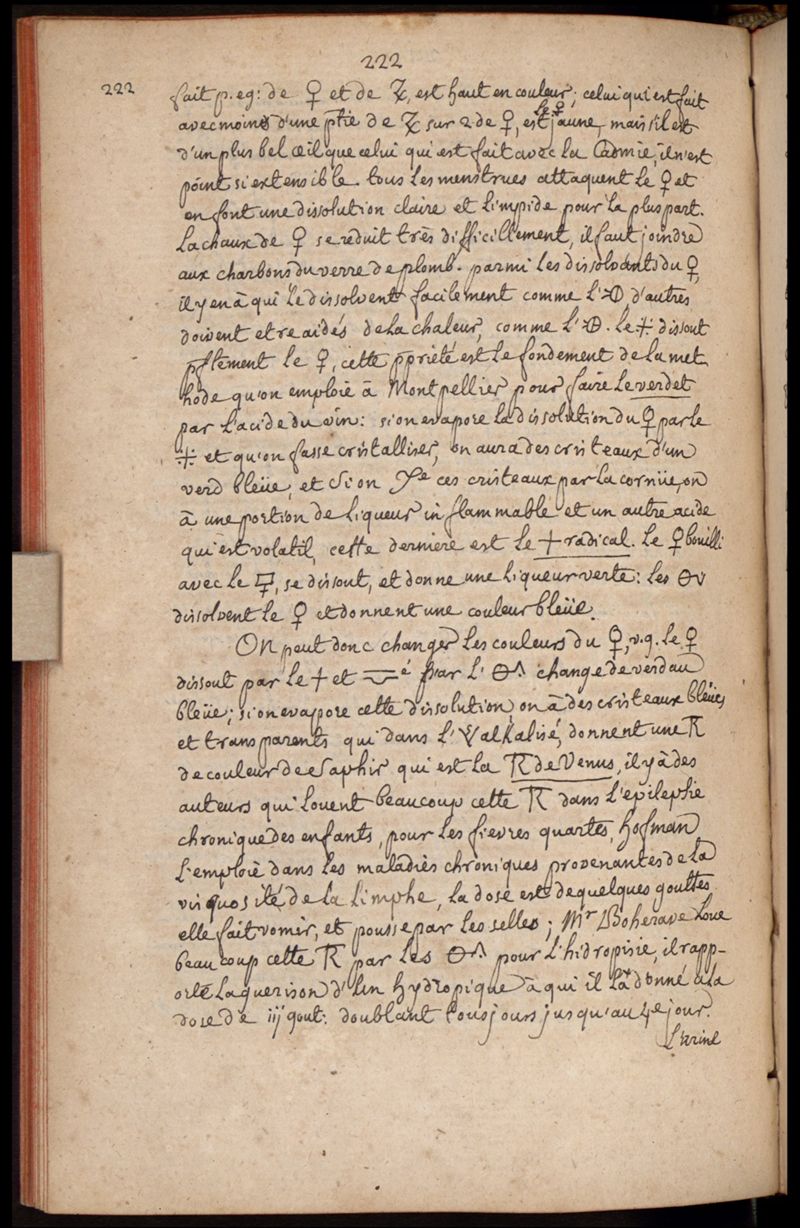 222
222
fait p. eg: de ♀ et de Z, est haut en couleur; celui qui est fait
le ♀
avec moins d'une ptie de Z sur 2 de ♀, est jaune, mais s'il est
d'un plus bel œil que celui qui est fait avec la Cadmie, il n'est
point si extensible. tous les menstrues attaquent le ♀ et
en font une dissolution claire et limpide pour la pluspart.
La chaux de ♀ se reduit très difficillement, il faut joindre
aux charbons du verre de plomb. parmi les dissolvants du ♀,
il y en à qui le dissolvent facilement comme l' d'autres
doivent etre aidés de la chaleur, comme l' . le ⁜ dissout
pftement le ♀, cette pprieté est le fondement de la met
hode qu'on emploie à Montpellier pour faire le verdet
par l'acide du vin: si on evapore la dissolution du ♀ par le
⁜ et qu'on fasse cristalliser, on aura des cristeaux d'un
verd bleüe, et si on ces cristeaux par la cornüe, on
à une portion de liqueur inflammable et un autre acide
qui est volatil, cette derniere est le + radical. Le ♀ bouilli
avec le , se dissout, et donne une liqueur verte: les
dissolvent le ♀ et donnent une couleur bleüe.
On peut donc changer les couleurs du ♀, v.g. le ♀
dissout par le + et é par l' change de verd au
bleüe; si on evapore cette dissolution, on à des cristeaux bleües
et transparents qui dans l' alkalisé, donnent une R
de couleur de saphir qui est la R de Venus, il y à des
auteurs qui louent beaucoup cette R dans l'epilepsie
chronique des enfants, pour les fievres quartes, Hofman
l'emploie dans les maladies chroniques provenantes de la
visquosité de la limphe, la dose est de quelques gouttes.
elle fait vomir, et pousse par les selles; Mr Boherave loue
beaucoup cette R par les pour l'hidropisie, il rapp-
orte la guerison d'un hydropique à qui il l'a donné à la
dose de iij gout: doublant tousjours jusqu'au 4e jour.
L'urine